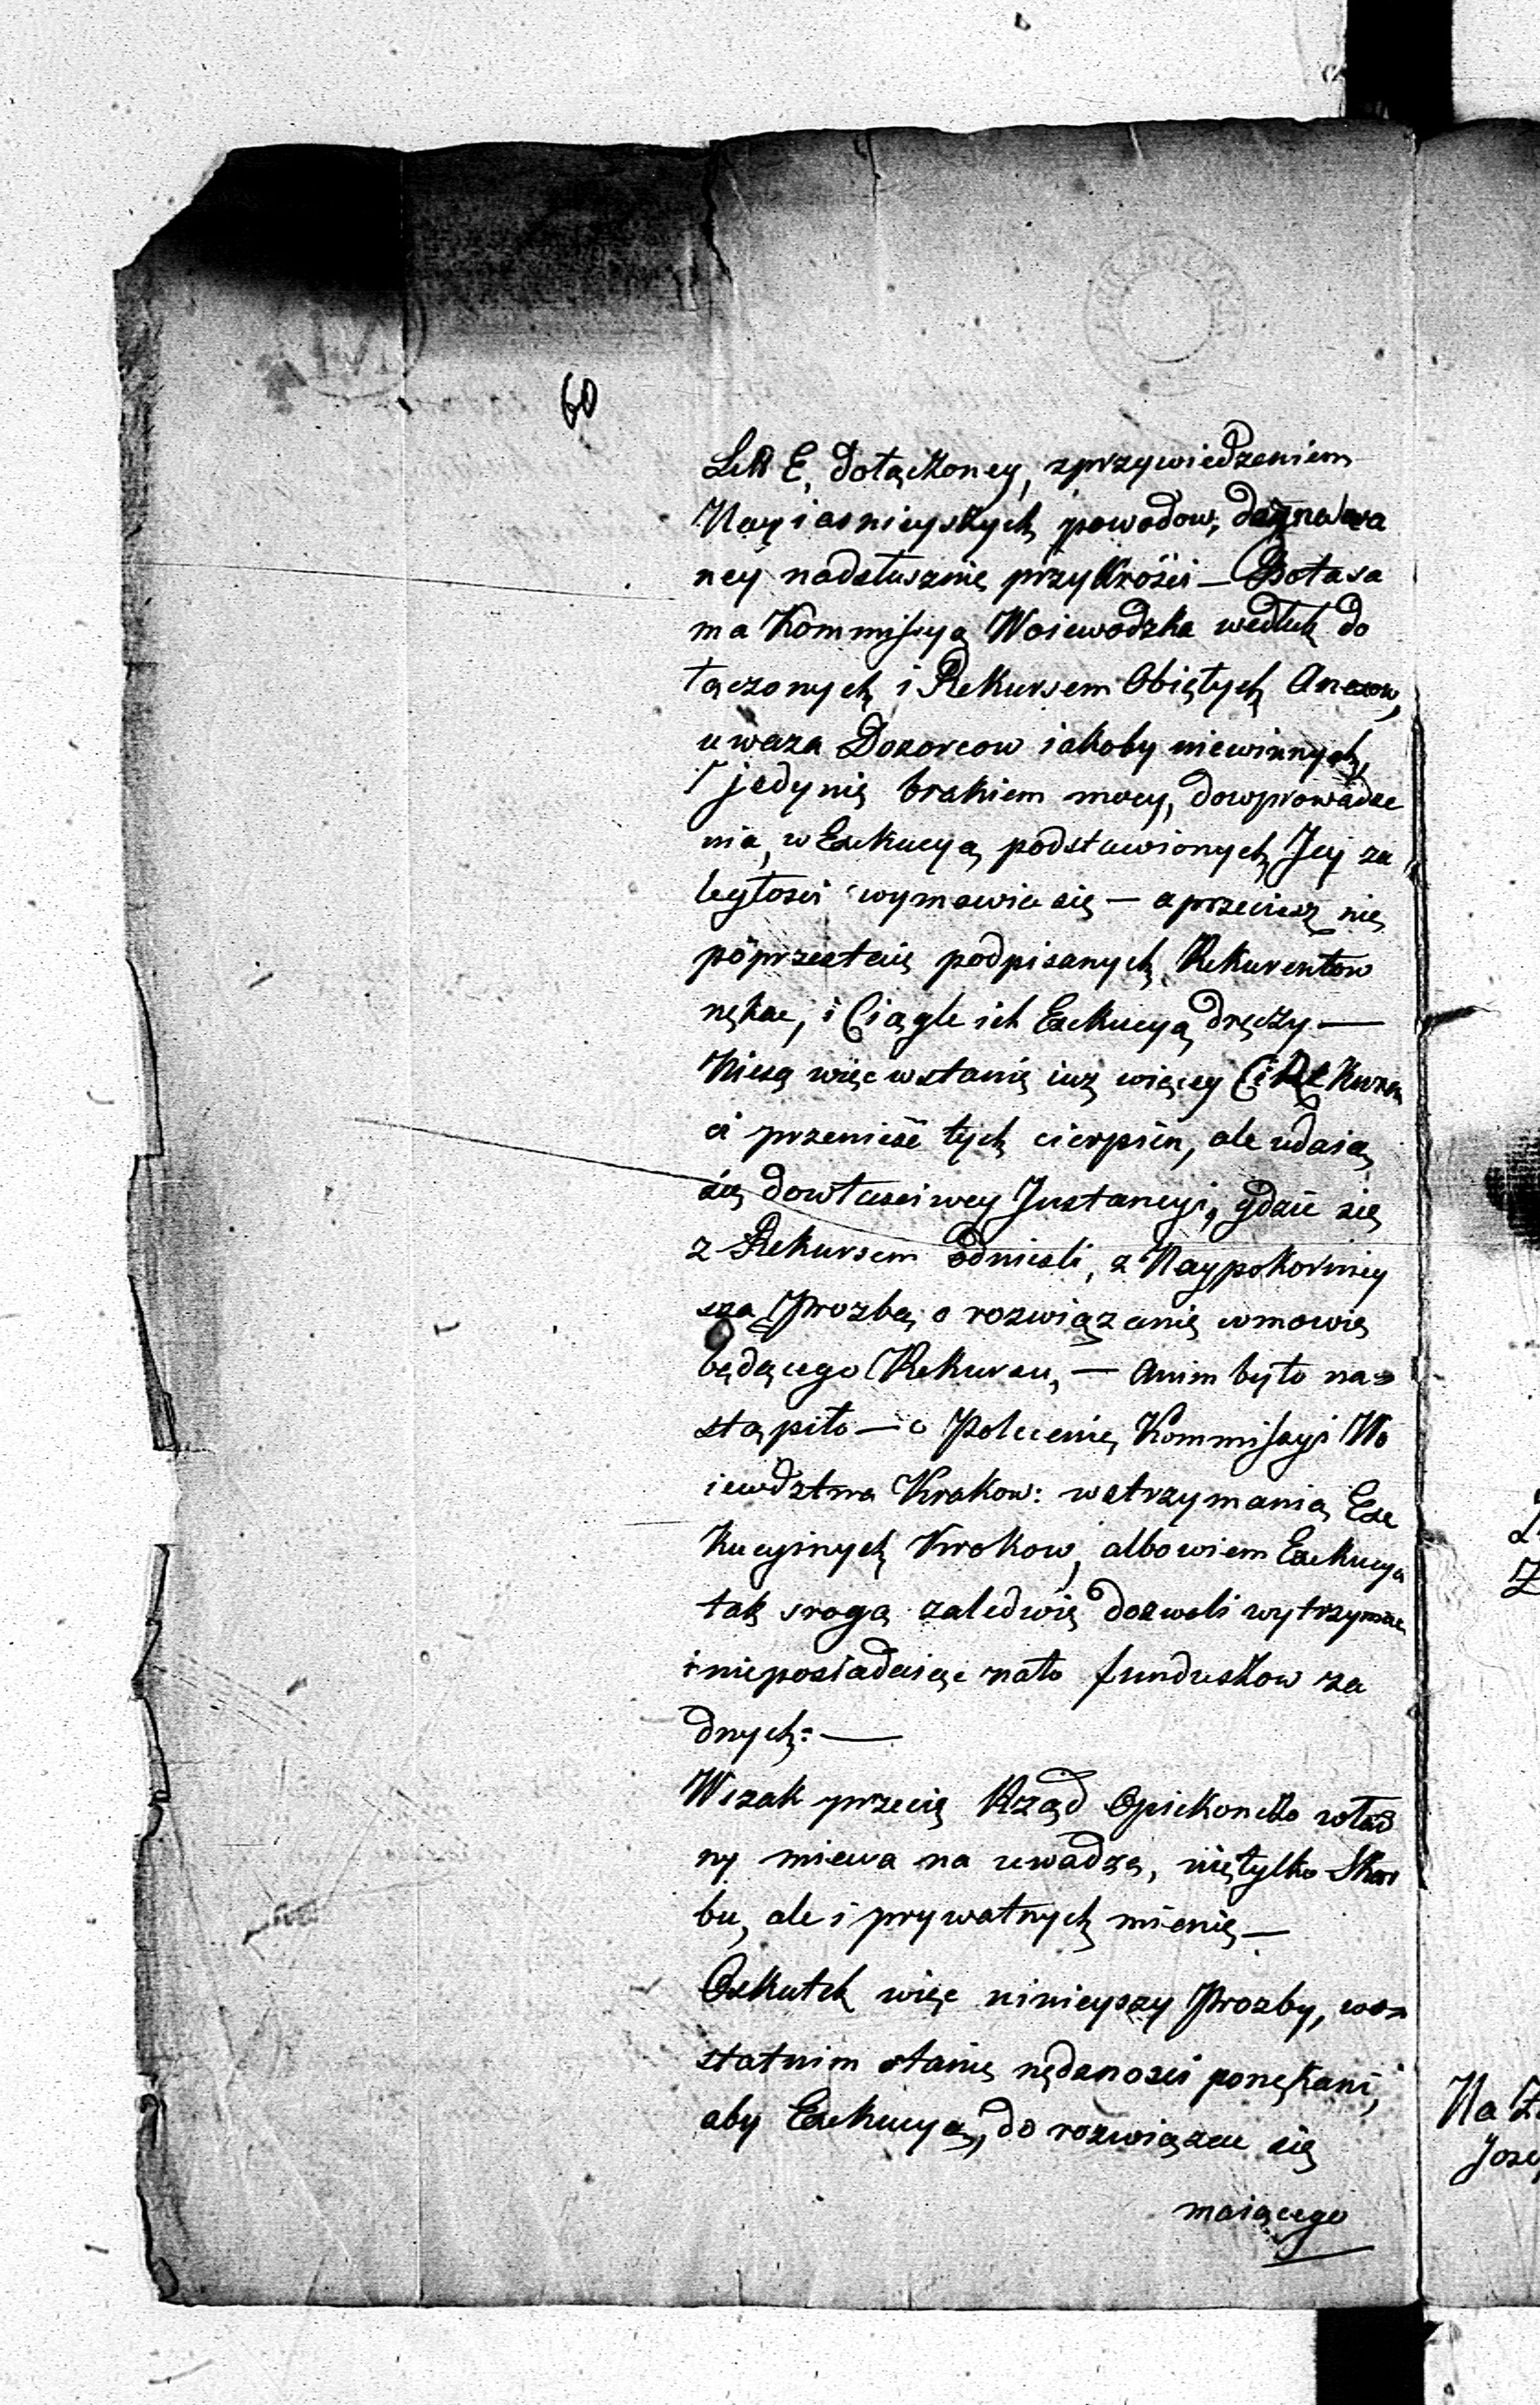 60
Litt E, dołączoney, zprzywiedzeniem
Nayiasnieyszych powodow, doznawa
ney nadsłusznie przykrości — Bo ta sa
ma Kommissya Woiewodzka według do
łączonych i Rekursem Obiętych Anexow,
uwaza Dozorcow iakoby niewinnych,
I jedynie brakiem mocy, dowprowadze
nia, w Exekucyą podstawionych Jey za
ległości wymawia się — a przeciesz nie
poprzestaie podpisanych Rekurentow
nękac, i Ciągle ich Exekucyą dręczy —
Niesą więc wstanie iuz więcey Ci Rekuren
ci przenieść tych cierpien, ale udaią
się dowłasciwey Instancyi, gdzie się
z Rekursem odniesli, z Naypokorniey
szą Prozbą o rozwiązanie wmowie
będącego Rekursu, — a nim by to na=
stąpiło — o Polecenie Kommissyi Wo
iewdztwa Krakow: wstrzymania Exe
kucyinych Krokow, albowiem Exekucya
tak sroga zaledwie dozwoli wytrzymac
i nieposiadaiąc nato funduszow za
dnych: —
Wszak przecię Rząd Opiekonczo wład
ny miewa na uwadze, nietylko Skar
bu, ale i prywatnych mienie —
Oskutek więc ninieyszy Prozby, wos
statnim stanie nędznosci ponękani,
aby Exekucya, do rozwiązac się
maiącego
Na